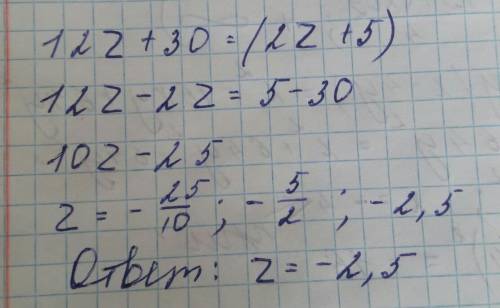 12z+30=(2z+5)
12z-2z=5-30
10z-25
z=-25/10; -5/2; -2,5
Ответ: z=-2,5